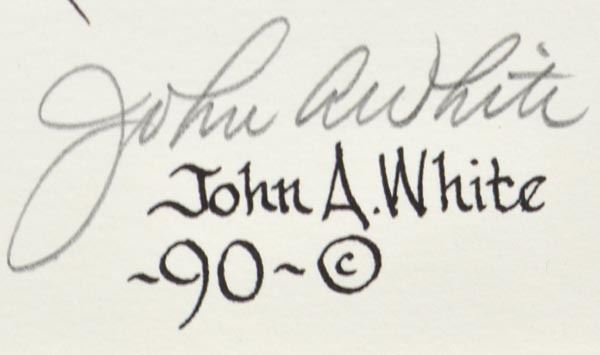 John A White
John A. White
~90~©